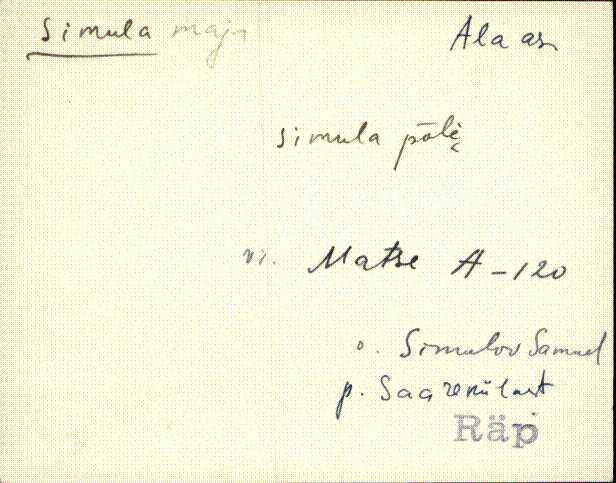 Simula maja Ala as.
simula pōlè̬
vi. Matse A-120
o. Simulov Samuel
p. Saarekülast
Räp